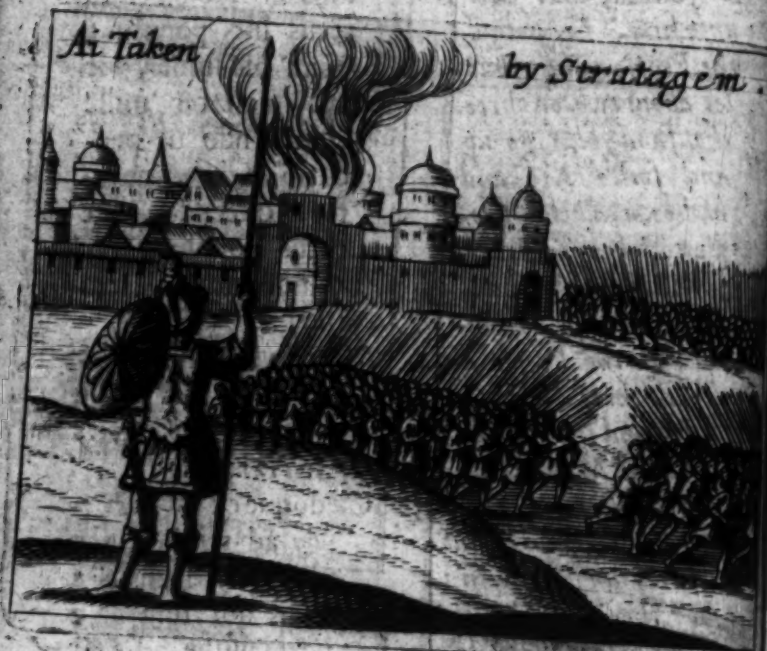 Ai Taken by Stratagem.